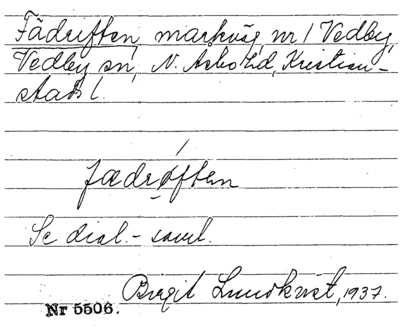 Fädriften, markväg, nr 1 Vedby,
Vedby sn, N. Åsbo hd, Kristian-
stads l.
fædrøften
Se dial.-saml.
Birgit Lundkvist, 1937.
Nr 5506.